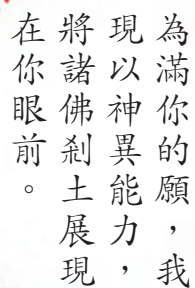 為滿你的願，我
現以神異能力，
將諸佛剎土展現
在你眼前。